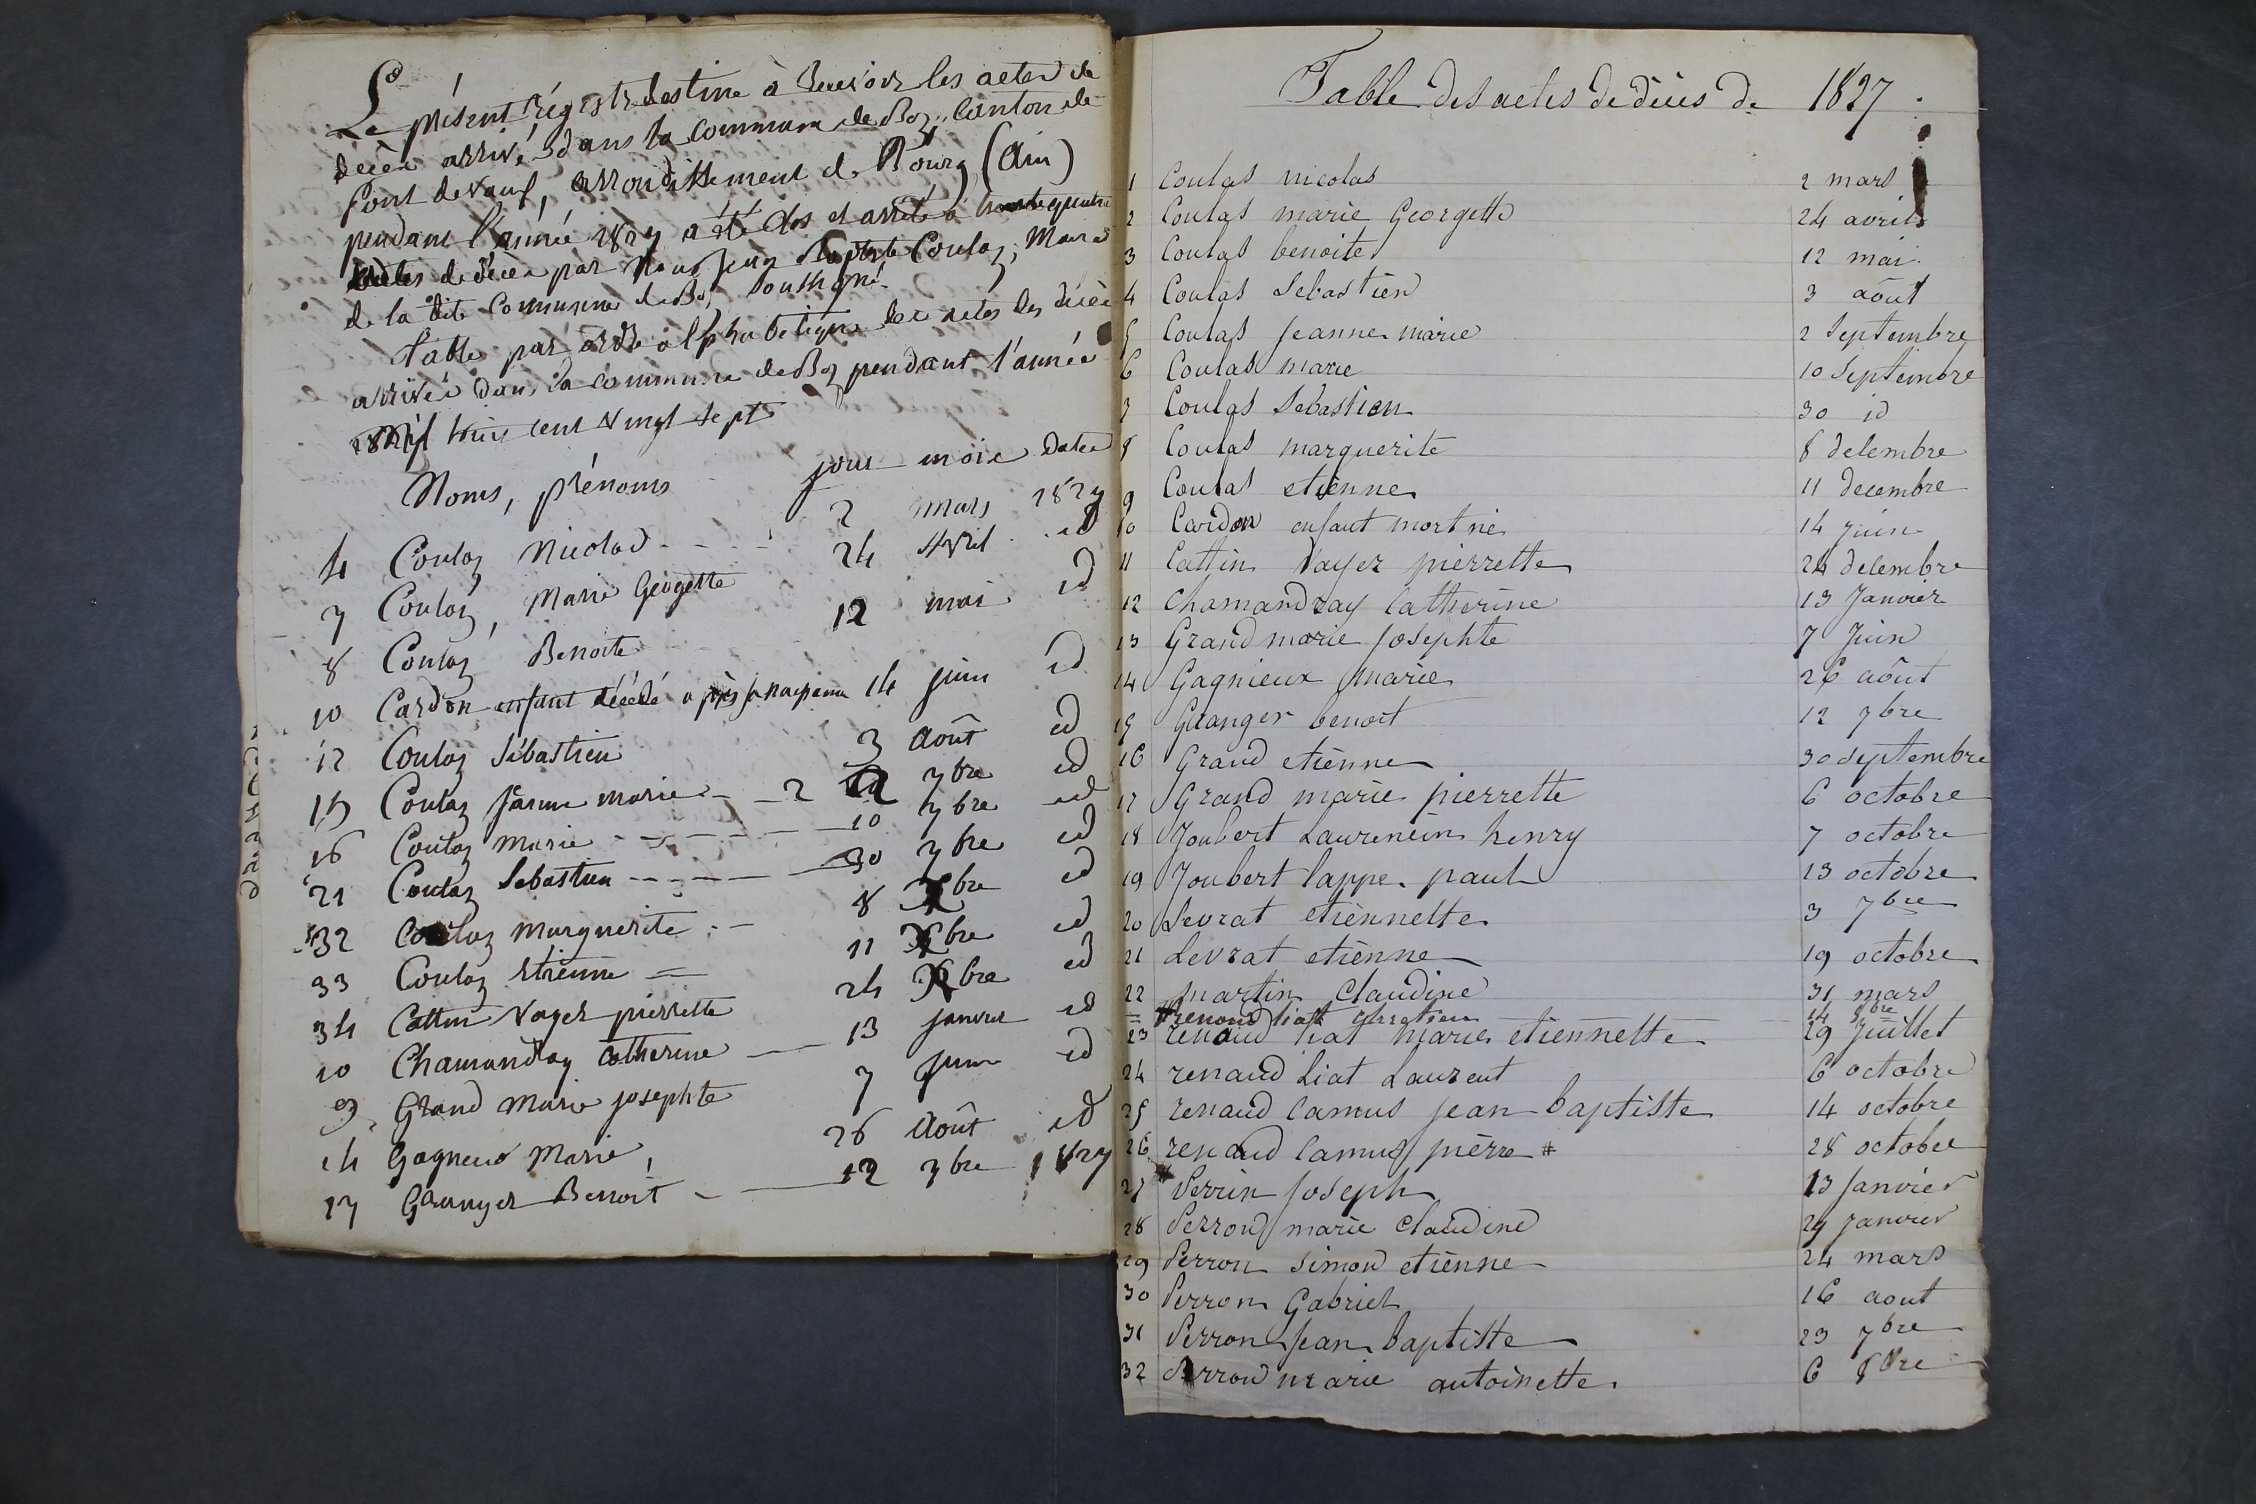 Le présent régistre destiné à recevoir les actes de
décès arrivés dans la commune de Boz, Canton de
Pont devaux, arrondissement de Bourg (Ain)
pendant l'année 1827 a été clos et arrêté à trente quatre
actes de décès par Nous Jean Baptiste Coulaz, Maire
de la dite Commune de Boz, soussigné.
Table par ordre alphabetique des actes des décès
arrivés dans la commune de Boz pendant l'année
mil huit cent vingt sept
Noms, prénoms jour mois dates
4 Coulaz Nicolas 2 mars 1827
7 Coulaz, Marie Geogette 24 Avril id
8 Coulaz Benoite 12 mai id
10 Cardon enfant décédé après sa naissance 14 juin id
12 Coulaz Sébastien 3 Août id
15 Coulaz Jeanne marie 2 7bre id
16 Coulaz Marie 10 7bre id
21 Coulaz Sebastien 30 7bre id
32 Coulaz Marguerite 8 Xbre id
33 Coulaz Etienne 11 Xbre id
34 Cattin Vayer pierrette 24 Xbre id
10 Chamandray Catherine 13 janvier id
9 Grand Marie josephte 7 Juin id
14 Gagneux Marie 26 Août id
17 Granger Benoit 12 7bre 1827
Table des actes de décès de 1827.
1 Coulas nicolas 2 mars
2 Coulas marie Georgette 24 avril
3 Coulas benoite 12 mai
4 Coulas Sebastien 3 août
5 Coulas Jeanne marie 2 Septembre
6 Coulas marie 10 Septembre
7 Coulas Sebastien 30 id
8 Coulas marguerite 8 decembre
9 Coulas etienne 11 decembre
10 Cardon enfant mort né 14 juin
11 Cattin Vayer pierrette 24 decembre
12 Chamandray Catherine 13 Janvier
13 Grand marie Josephte 7 Juin
14 Gagnieux marie 26 août
15 Granger benoit 12 7bre
16 Grand etienne 30 septembre
17 Grand marie pierrette 6 octobre
18 Joubert Laurencin henry 7 octobre
19 Joubert lappe paul 13 octobre
20 Levrat etiennette 3 7bre
21 Levrat etienne 19 octobre
22 martin Claudine 31 mars
renaud liat 14 8bre
23 renaud liat marie etiennette 29 Juillet
24 renaud Liat Laurent 6 octobre
25 renaud Camus jean baptiste 14 octobre
26 renaud Camus pierre # 28 octobre
27 Perrin Joseph 13 Janvier
28 Perron marie Claudine 29 Janvier
29 Perron simon etienne 24 mars
30 Perron Gabriel 16 aout
31 Perron Jean baptiste 23 7bre
32 Perron marie antoinette 6 8bre